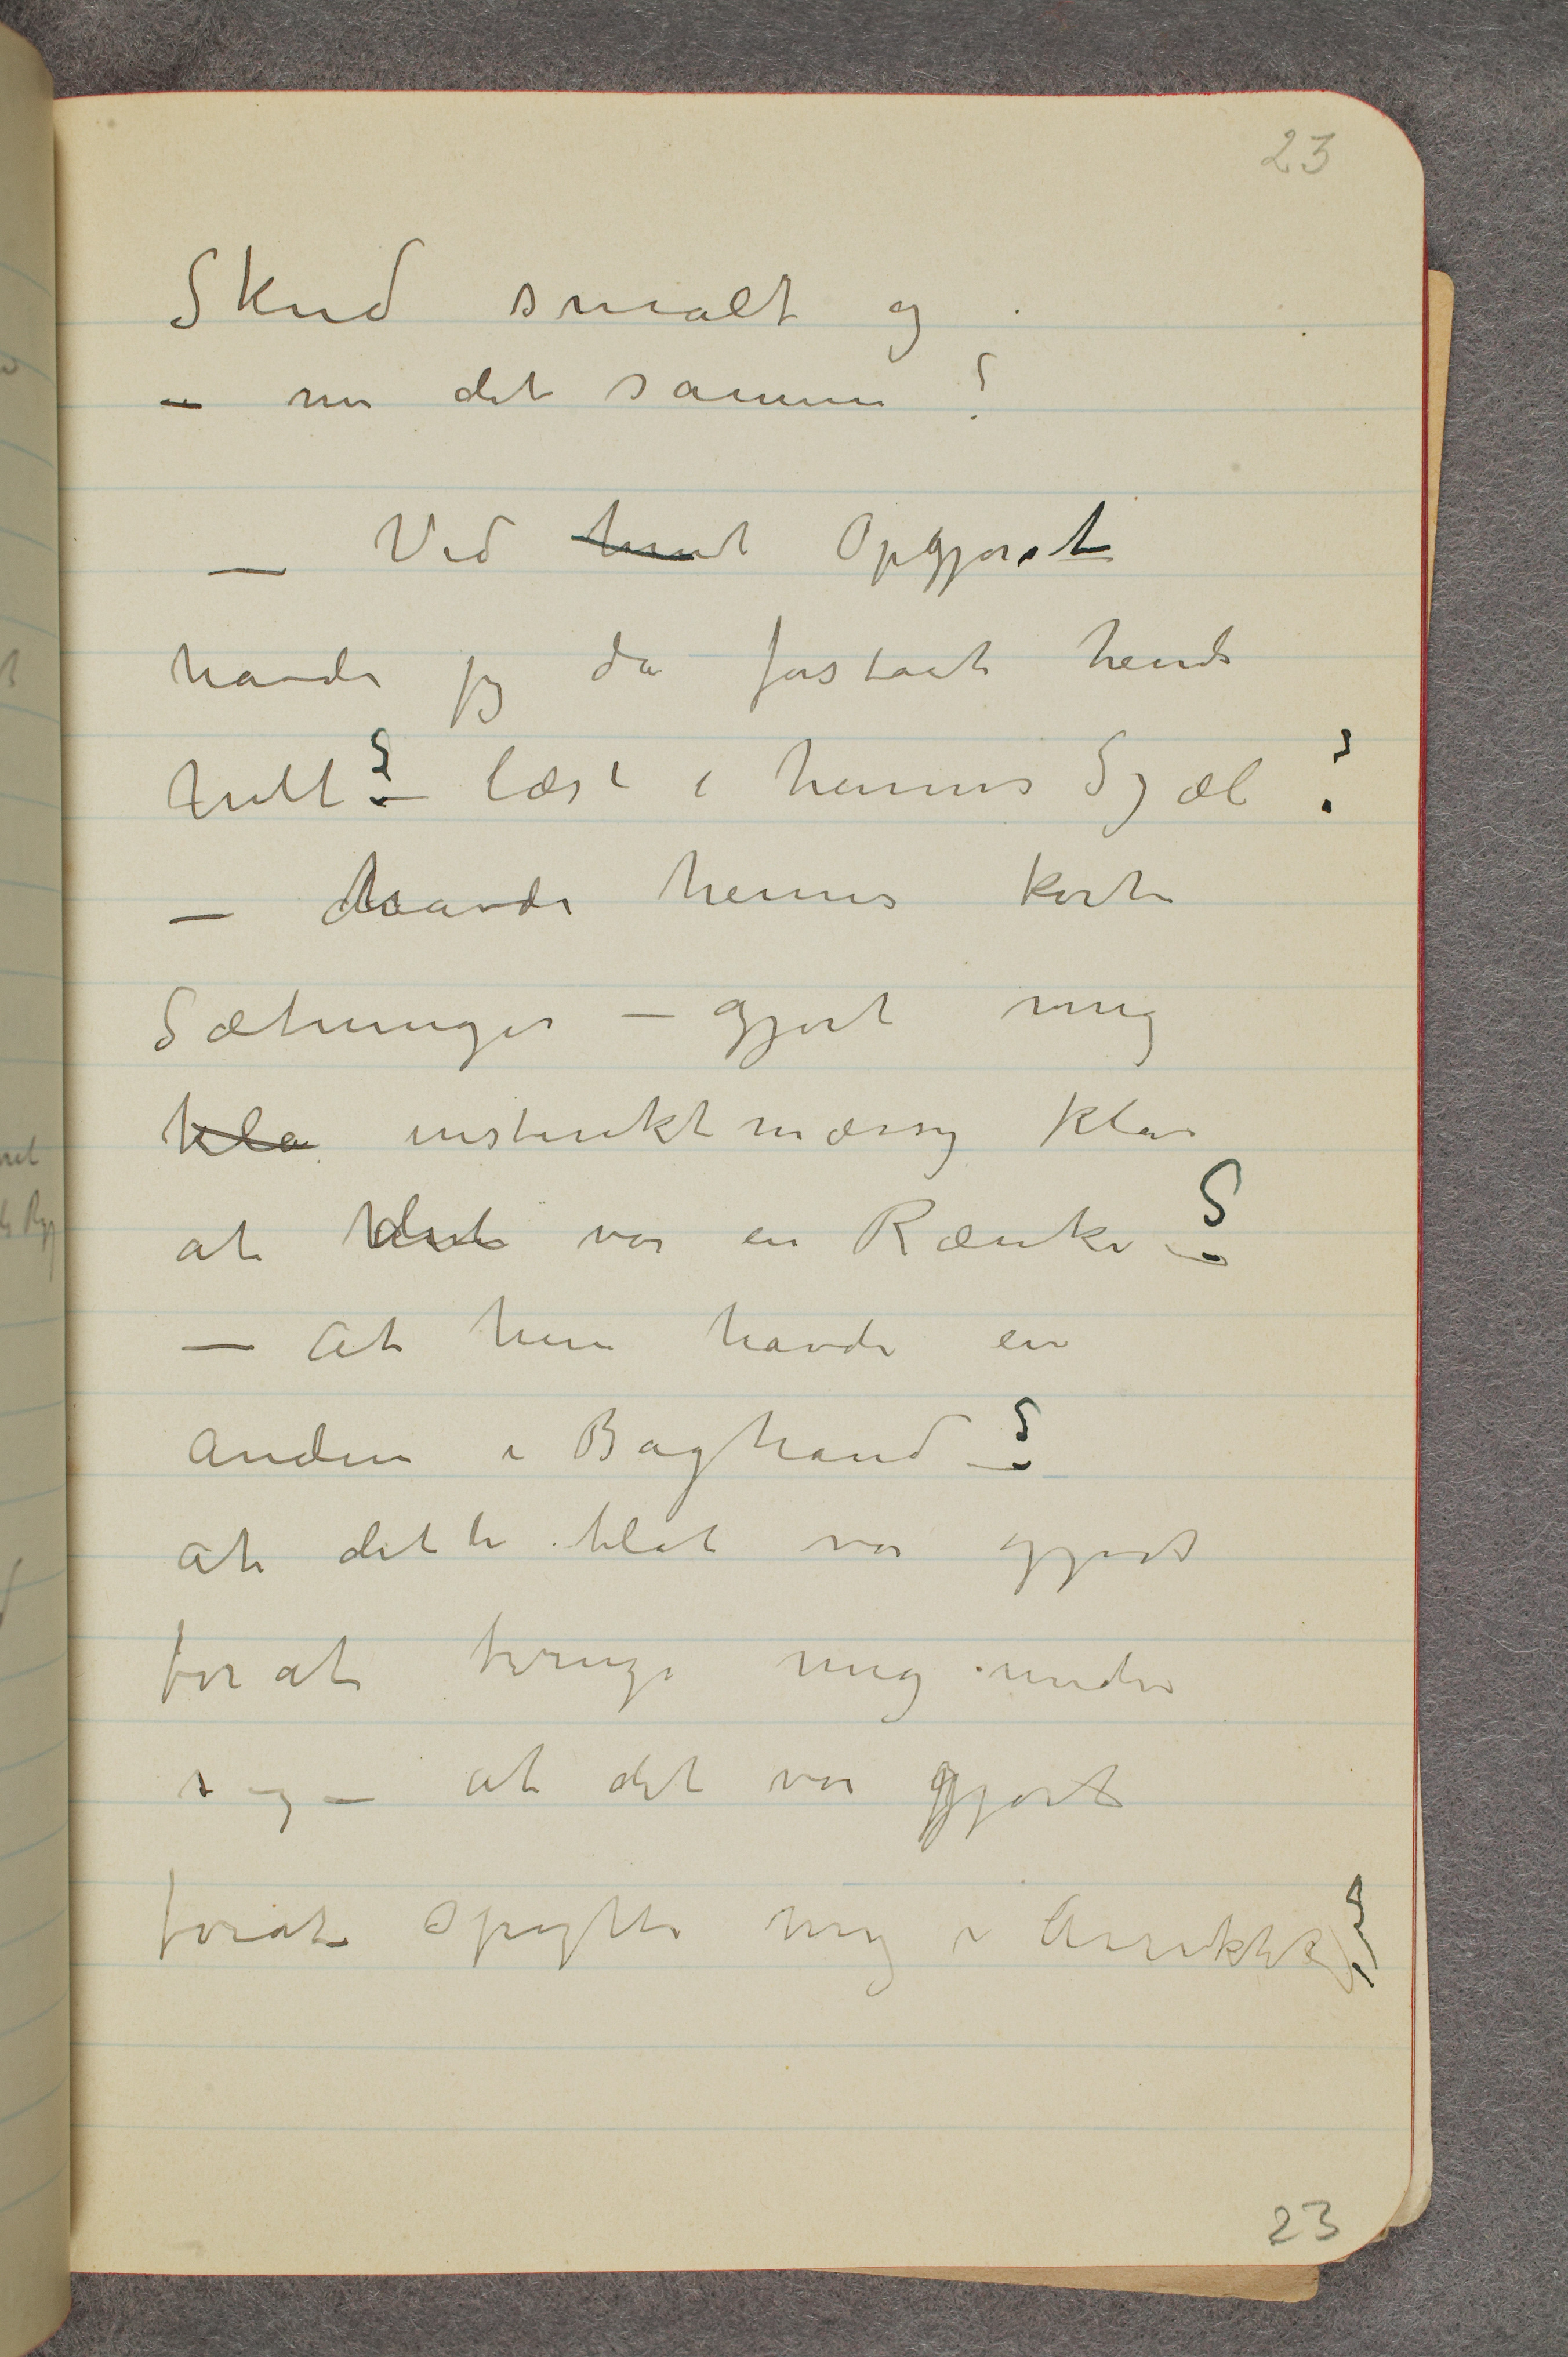 23
Skud smalt og
– nu det samme?
– Ved hint Opgjøret
havde jeg da forstaat hende
helt? – læst i hennes Sjæl?
– havde hennes korte
Sætninger – gjort mig
kla instinktmæssig klar
at det var en Rænke?
– At hun havde en
anden i Baghaand?
at dette blot var gjort
for at tvinge mig under
sig – at det var gjort
forat spytte mig i Ansiktet?
23